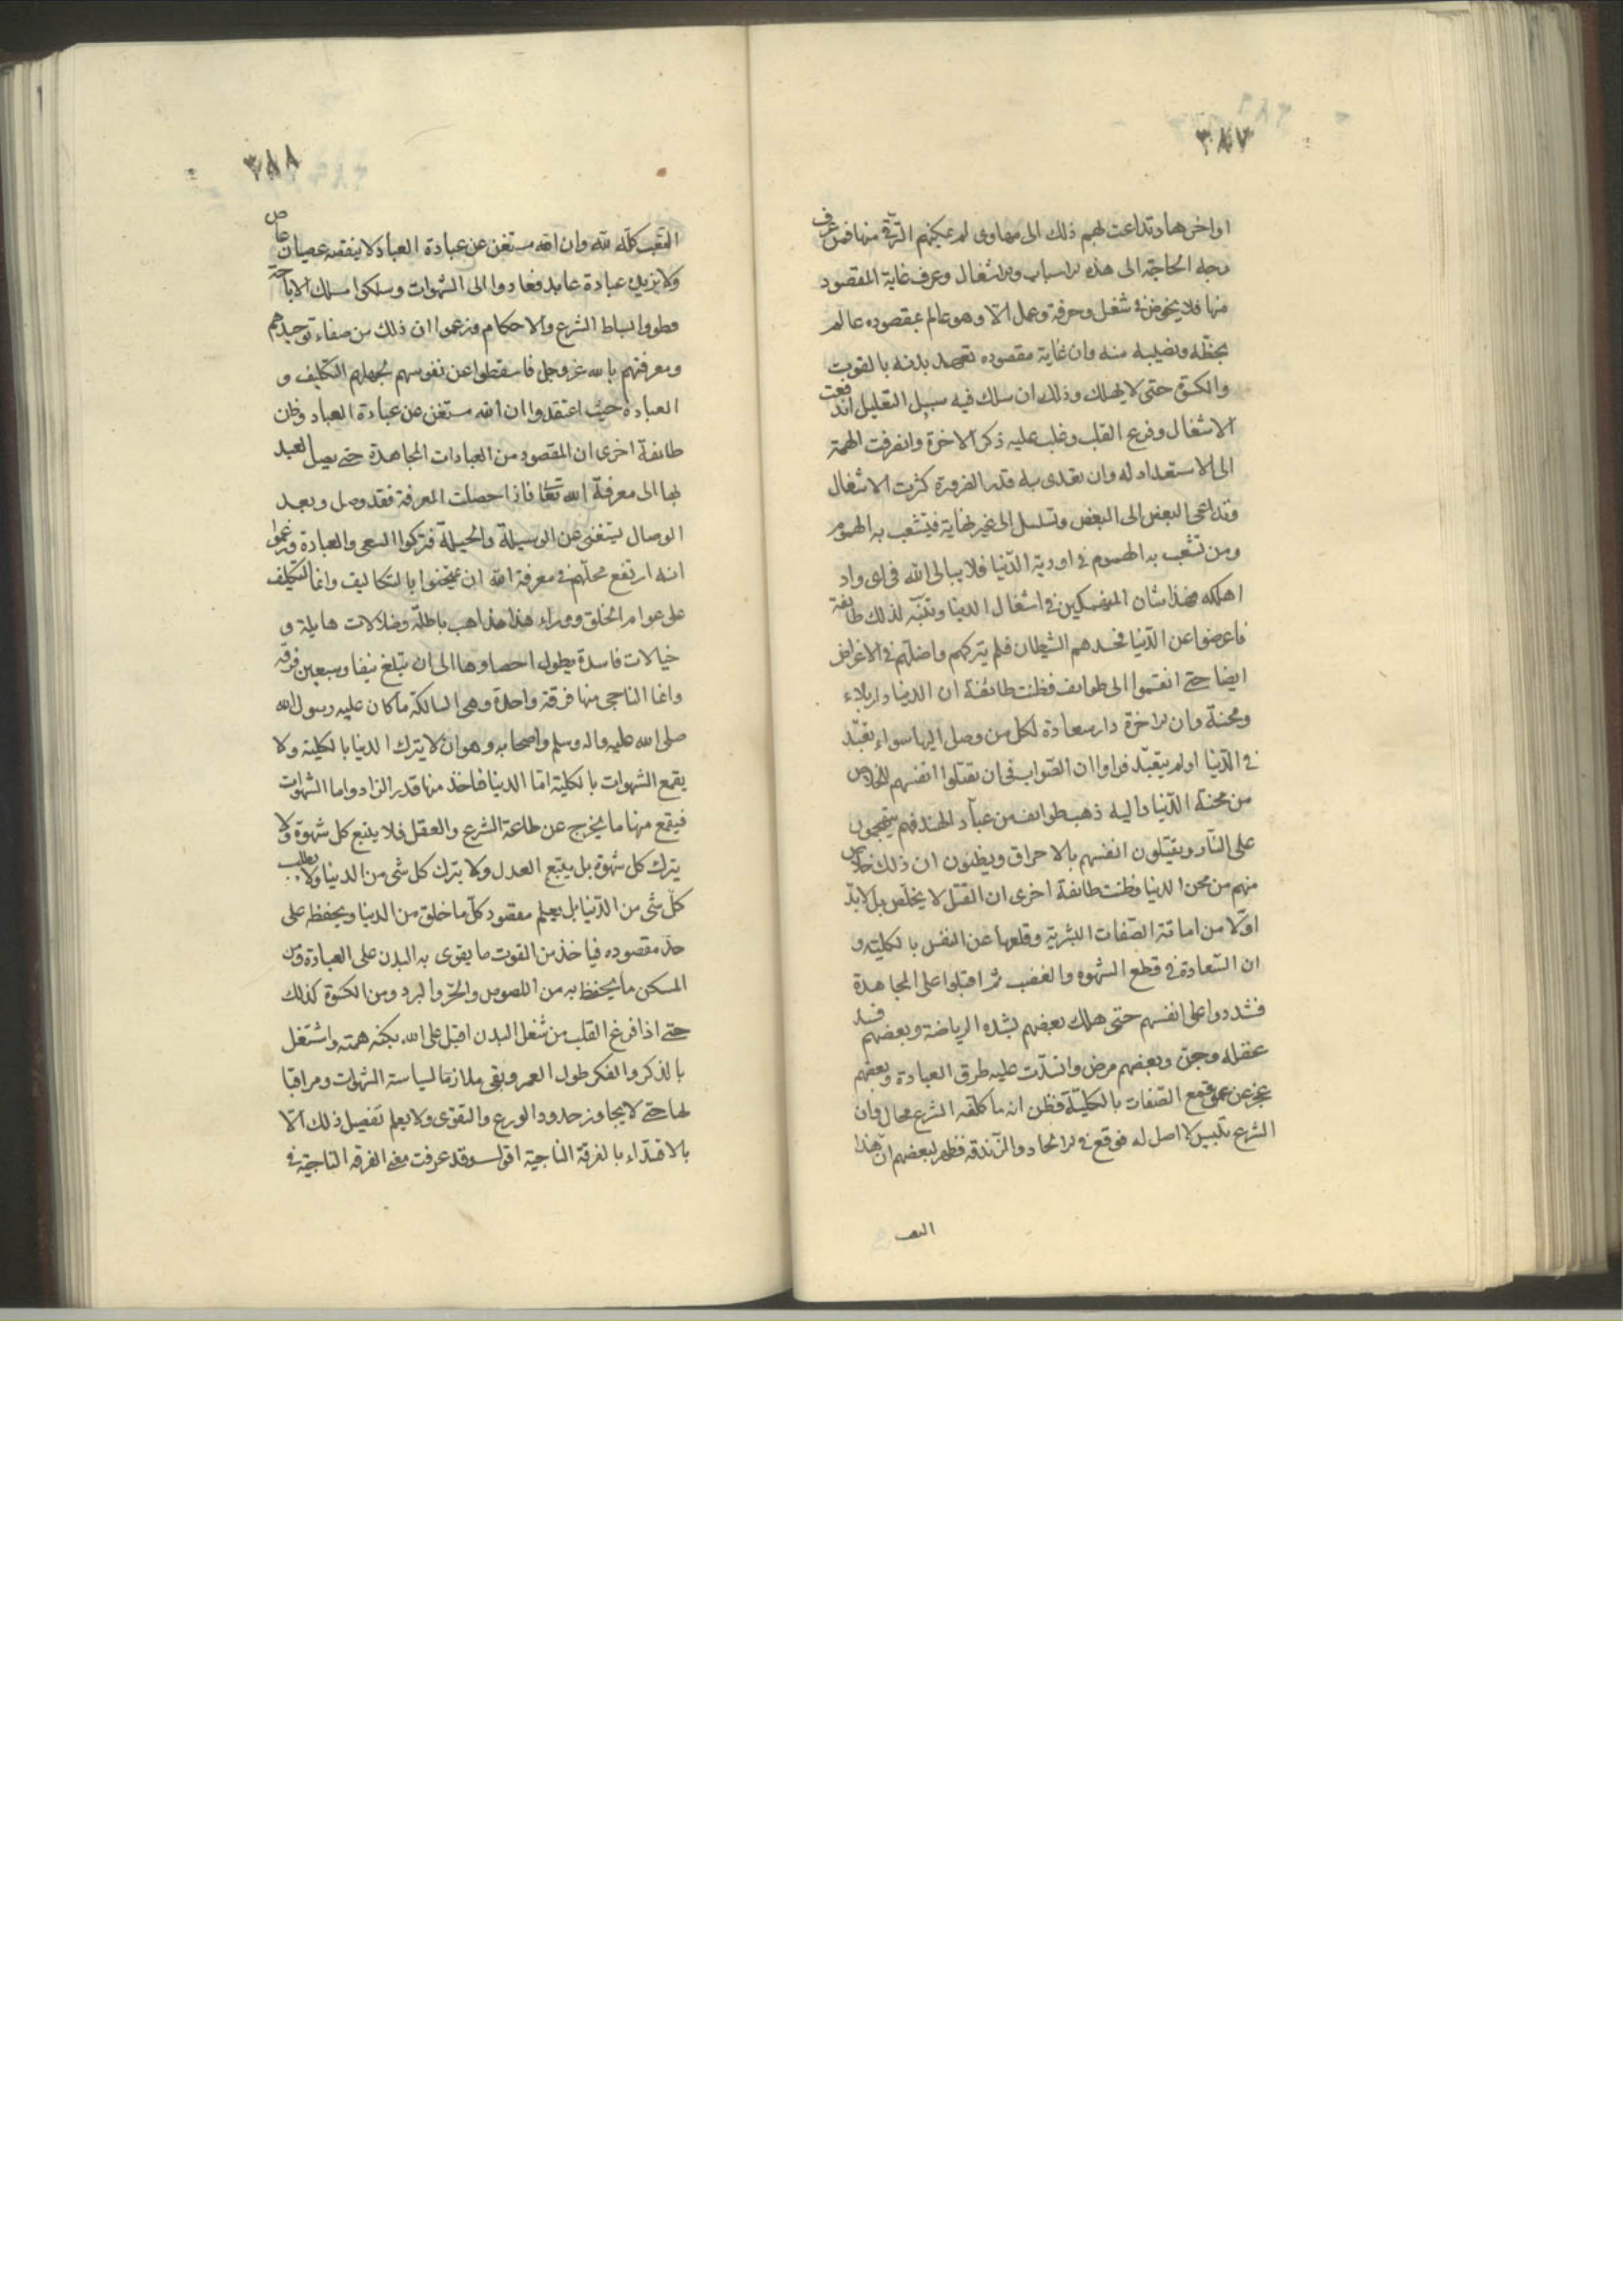 ٣٨٧
اواخرها وتداعت لهم ذلك الى مهاوى لم يمكنهم الترقى منها فمن عرف
وجه الحاجة الى هذه الاسباب والاشغال وعرف غاية المقصود
منها فلا يخوض فى شغل وحرفة وعمل الا وهو عالم بمقصوده عالم
بحظه ونصيبه منه وان غاية مقصوده تعهد بدنه بالقوت
والكسوة حتى لا يهلك وذلك ان سلك فيه سبيل التقليل اندفعت
الاشغال وفرغ القلب وغلب عليه ذكر الاخرة وانصرفت الهمة
الى الاستعداد له وان تعدى به قدر الضرورة كثرت الاشغال
وتداعى البعض الى البعض وتسلسل الى غير نهاية فيتشعب به الهموم
ومن تشعب به الهموم فى اودية الدّنيا فلا يبالى الله فى اى واد
اهلكه فهذا شان المنهمكين فى اشغال الدنيا وتنبّه لذلك طائفة
فاعرضوا عن الدّنيا فحسدهم الشيطان فلم يتركهم واضلّهم فى الاعراض
ايضا حتى انقسموا الى طوائف فظنت طائفة ان الدنيا دار بلاء
ومحنة وان الاخرة دار سعادة لكل من وصل اليها سواء تعبّد
فى الدّنيا او لم يتعبّد فراوا ان الصّواب فى ان يقتلوا انفسهم للخلاص
من محنة الدّنيا واليه ذهب طوائف من عبّاد الهند فهم يتهجمون
على النّار ويقتلون انفسهم بالاحراق ويظنون ان ذلك خلاص
منهم من محن الدنيا وظنت طائفة اخرى ان القتل لا يخلّص بل لابدّ
اوّلا من اماتة الصّفات البشرية وقلعها عن النفس بالكلية و
ان السّعادة فى قطع الشهوه والغضب ثم اقبلوا على المجاهدة
فشددوا على انفسهم حتى هلك بعضهم بشده الرياضة وبعضهم فسد
عقله وجنّ وبعضهم مرض وانسدّت عليه طرق العبادة وبعضهم
عجز عن قمع الصّفات بالكليّة فظن ان ما كلّفه الشرع محال وان
الشرع تلبيس لا اصل له فوقع فى الالحاد والزّندقه فظهر لبعضهم انّ هذا
التعب
٣٨٨
التّعب كلّه للّه وان الله مستغن عن عبادة العباد لا ينقصه عصيان عاص
ولا تزيده عبادة عابد فعادوا الى الشهوات وسلكوا مسلك الاباحة
وطووا بساط الشرع والاحكام وزعموا ان ذلك من صفاء توحيدهم
ومعرفتهم بالله عز وجل فاسقطوا عن نفوسهم بجهلهم التكليف و
العبادة حيث اعتقدوا ان الله مستغن عن عبادة العباد وظن
طائفة اخرى ان المقصود من العبادات المجاهدة حتى يصل العبد
بها الى معرفة الله تعا فاذا حصلت المعرفة فقد وصل وبعد
الوصال يستغنى عن الوسيلة والحيلة فتركوا السعى والعبادة وزعموا
انه ارتفع محلّهم فى معرفة الله ان يمتحنوا بالتكاليف وانما التكليف
على عوام الخلق ووراء هذا مذاهب باطلة وضلالات هايلة و
خيالات فاسدة يطول احصاوها الى ان يبلغ نيفا وسبعين فرقه
وانما الناجى منها فرقة واحدة وهى السالكة ما كان عليه رسول الله
صلى الله عليه واله وسلم واصحابه وهو ان لا يترك الدنيا بالكلية ولا
يقمع الشهوات بالكلية امّا الدنيا فاخذ منها قدر الزاد واما الشهوات
فيقمع منها ما يخرج عن طاعة الشرع والعقل فلا يتبع كل شهوة ولا
يترك كل شهوة بل يتبع العدل ولا يترك كل شى من الدنيا ولا يطلب
كلّ شى من الدّنيا بل يعلم مقصود كلّ ما خلق من الدنيا ويحفظه على
حدّ مقصوده فياخذ من القوت ما يقوى به البدن على العبادة ومن
المسكن ما يحفظ به من اللصوص والحرّ والبرد ومن الكسوة كذلك
حتى اذا فرغ القلب من شغل البدن اقبل على الله بكنه همته واشتغل
بالذكر والفكر طول العمر وبقى ملازما لسياسة الشهوات ومراقبا
لها حتى لا يجاوز حدود الورع والتقوى ولا يعلم تفصيل ذلك الّا
بالاقتداء بالفرقة الناجية اقول وقد عرفت معنى الفرقه الناجية فى